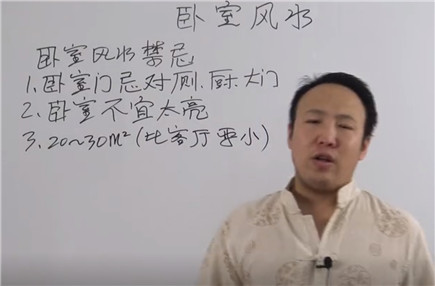 卧室风水
卧室风水禁忌
1.卧室门忌对厕.厨.大门
2.卧室不宜太亮
3.20~30m²(比客厅要小)